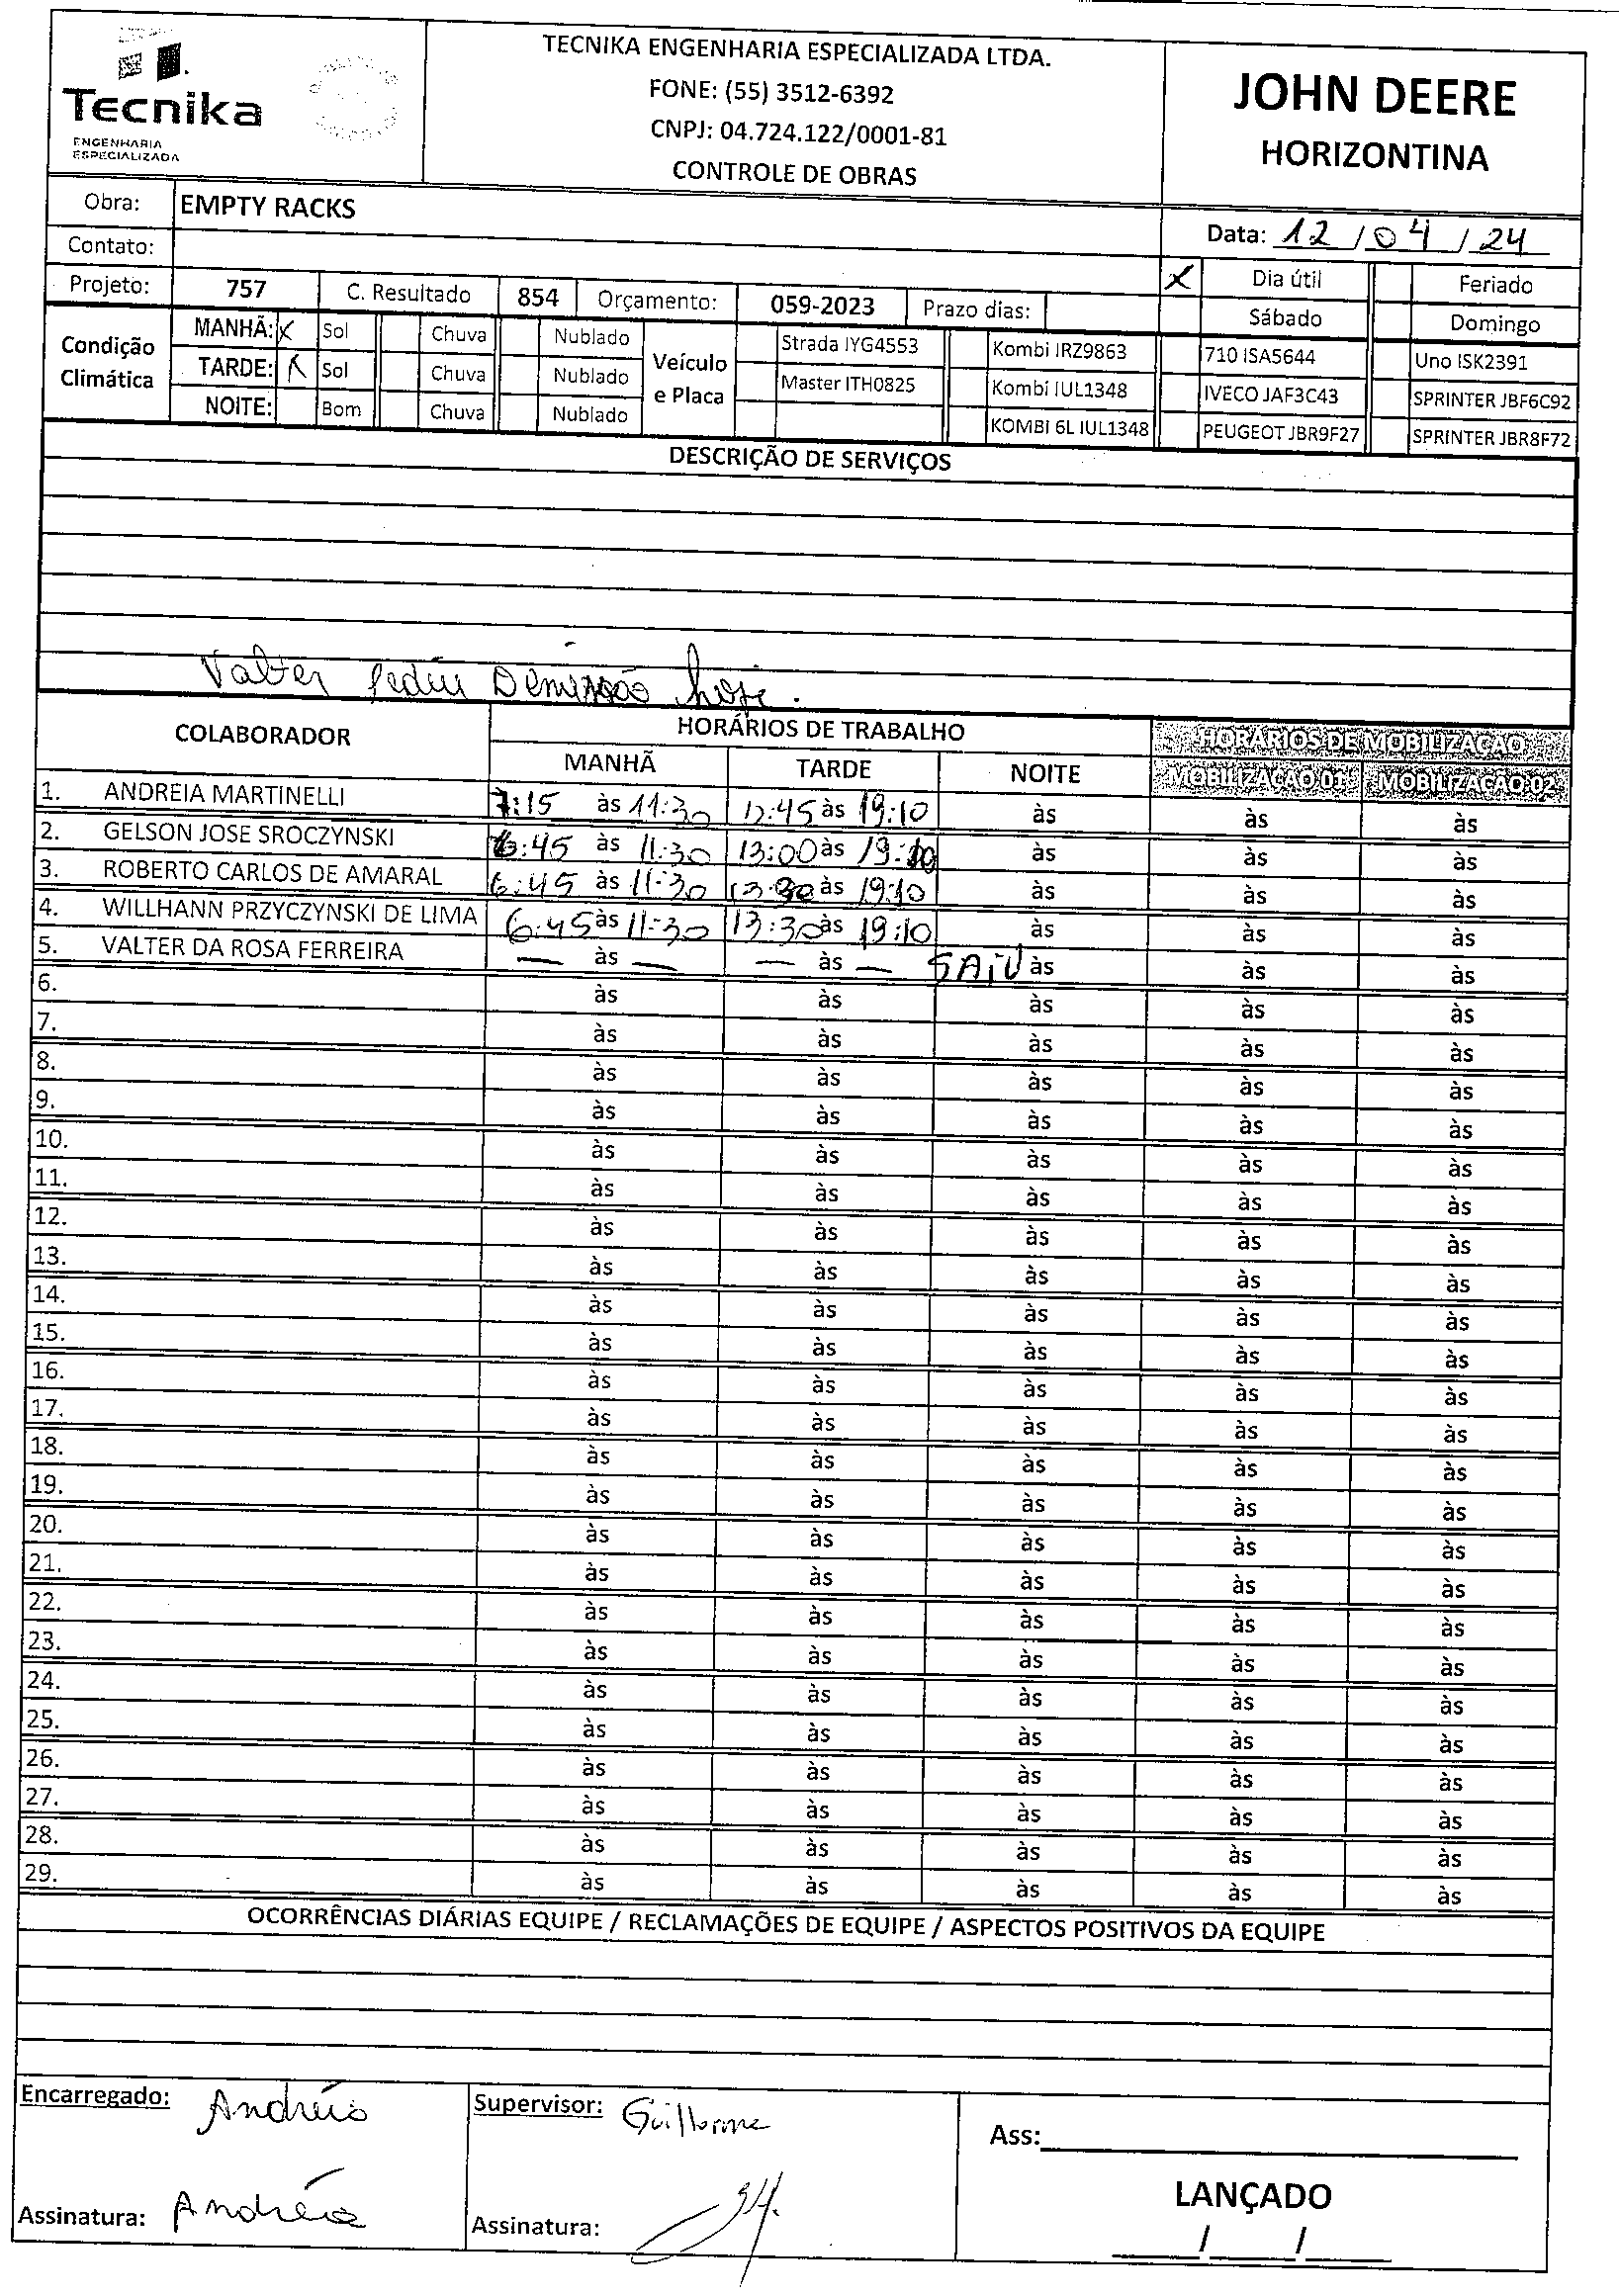 Tecnika
ENGENHARIA
ESPECIALIZADA
TECNIKA ENGENHARIA ESPECIALIZADA LTDA.
FONE: (55) 3512-6392
CNPJ: 04.724.122/0001-81
CONTROLE DE OBRAS
JOHN DEERE
HORIZONTINA
Obra: EMPTY RACKS
Data: 12 / 04 / 24
Contato:
X Dia útil Feriado
Projeto: 757 C. Resultado 854 Orçamento: 059-2023 Prazo dias:
Sábado Domingo
Condição Climática
MANHÃ: X Sol Chuva Nublado
TARDE: X Sol Chuva Nublado
NOITE: Bom Chuva Nublado
Veículo e Placa
Strada IYG4553 Kombi IRZ9863 710 ISA5644 Uno ISK2391
Master ITH0825 Kombi IUL1348 IVECO JAF3C43 SPRINTER JBF6C92
KOMBI 6L IUL1348 PEUGEOT JBR9F27 SPRINTER JBR8F72
DESCRIÇÃO DE SERVIÇOS
Valter pediu Demissão hoje.
COLABORADOR HORÁRIOS DE TRABALHO HORÁRIOS DE MOBILIZAÇÃO
MANHÃ TARDE NOITE MOBILIZAÇÃO 01 MOBILIZAÇÃO 02
1. ANDREIA MARTINELLI 7:15 às 11:30 12:45 às 19:10 às às às
2. GELSON JOSE SROCZYNSKI 6:45 às 11:30 13:00 às 19:10 às às às
3. ROBERTO CARLOS DE AMARAL 6:45 às 11:30 13:30 às 19:10 às às às
4. WILLHANN PRZYCZYNSKI DE LIMA 6:45 às 11:30 13:30 às 19:10 às às às
5. VALTER DA ROSA FERREIRA — às — — às — SAIU às às às
6. às às às às às
7. às às às às às
8. às às às às às
9. às às às às às
10. às às às às às
11. às às às às às
12. às às às às às
13. às às às às às
14. às às às às às
15. às às às às às
16. às às às às às
17. às às às às às
18. às às às às às
19. às às às às às
20. às às às às às
21. às às às às às
22. às às às às às
23. às às às às às
24. às às às às às
25. às às às às às
26. às às às às às
27. às às às às às
28. às às às às às
29. às às às às às
OCORRÊNCIAS DIÁRIAS EQUIPE / RECLAMAÇÕES DE EQUIPE / ASPECTOS POSITIVOS DA EQUIPE
Encarregado: Andréia
Supervisor: Guilherme
Ass:
LANÇADO
Assinatura: Andréia
Assinatura:
/ /